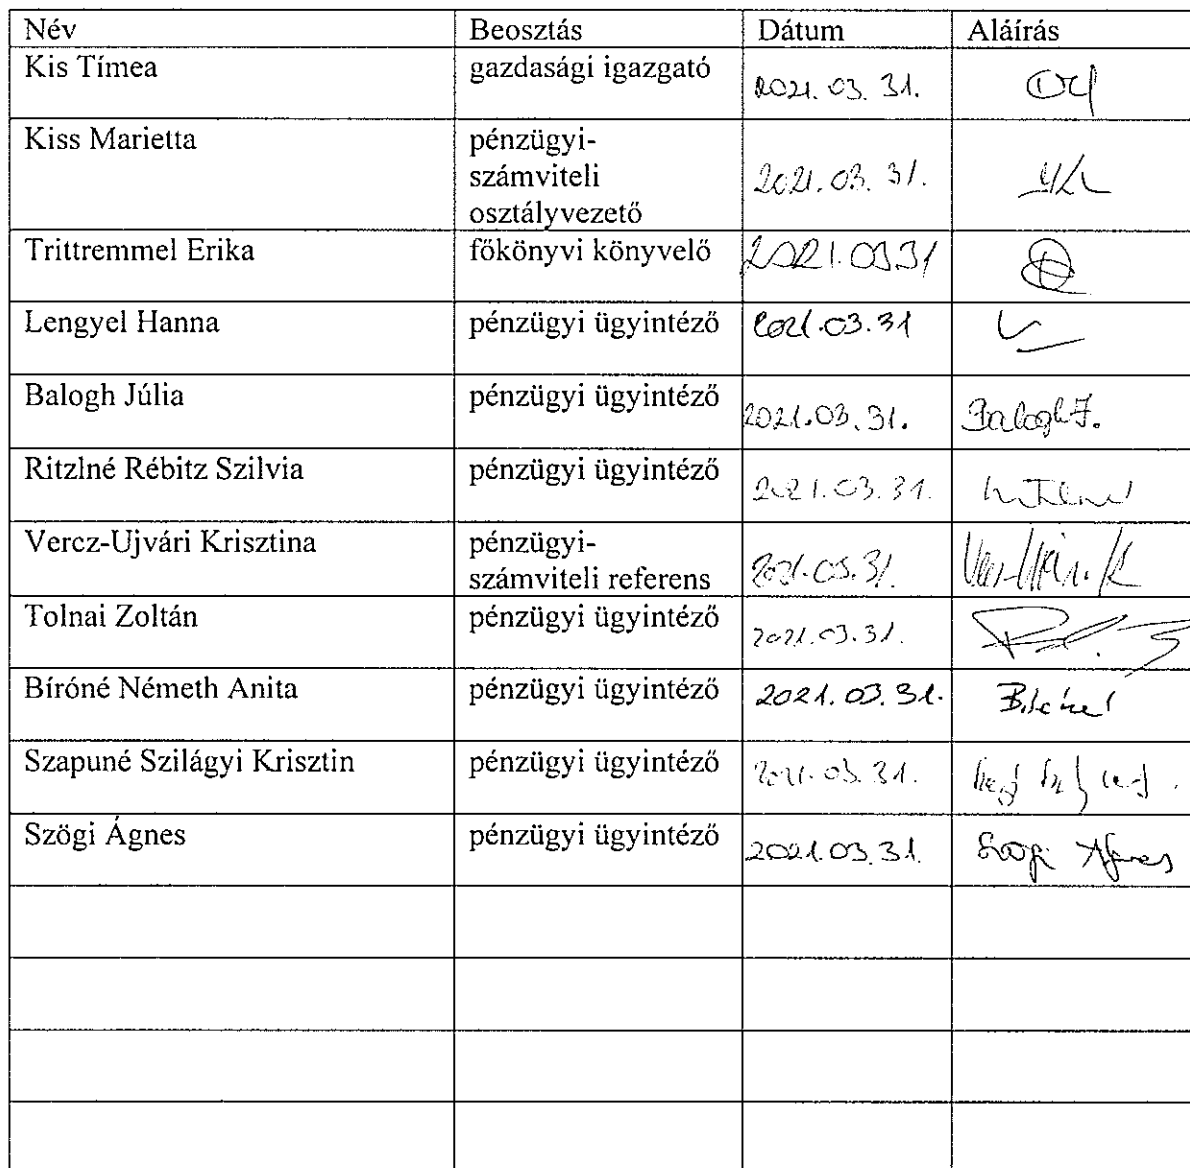 Név Beosztás Dátum Aláírás
Kis Tímea gazdasági igazgató 2021. 03. 31.
Kiss Marietta pénzügyi-
számviteli 2021. 03. 31.
osztályvezető
Trittremmel Erika főkönyvi könyvelő 2021.03.31
Lengyel Hanna pénzügyi ügyintéző 2021.03.31
Balogh Júlia pénzügyi ügyintéző 2021.03.31. Balogh J.
Ritzlné Rébitz Szilvia pénzügyi ügyintéző 2021.03.31.
Vercz-Ujvári Krisztina pénzügyi-
számviteli referens 2021.03.31.
Tolnai Zoltán pénzügyi ügyintéző 2021.03.31.
Bíróné Németh Anita pénzügyi ügyintéző 2021.03.31.
Szapuné Szilágyi Krisztin pénzügyi ügyintéző 2021.03.31.
Szögi Ágnes pénzügyi ügyintéző 2021.03.31. Szögi Ágnes